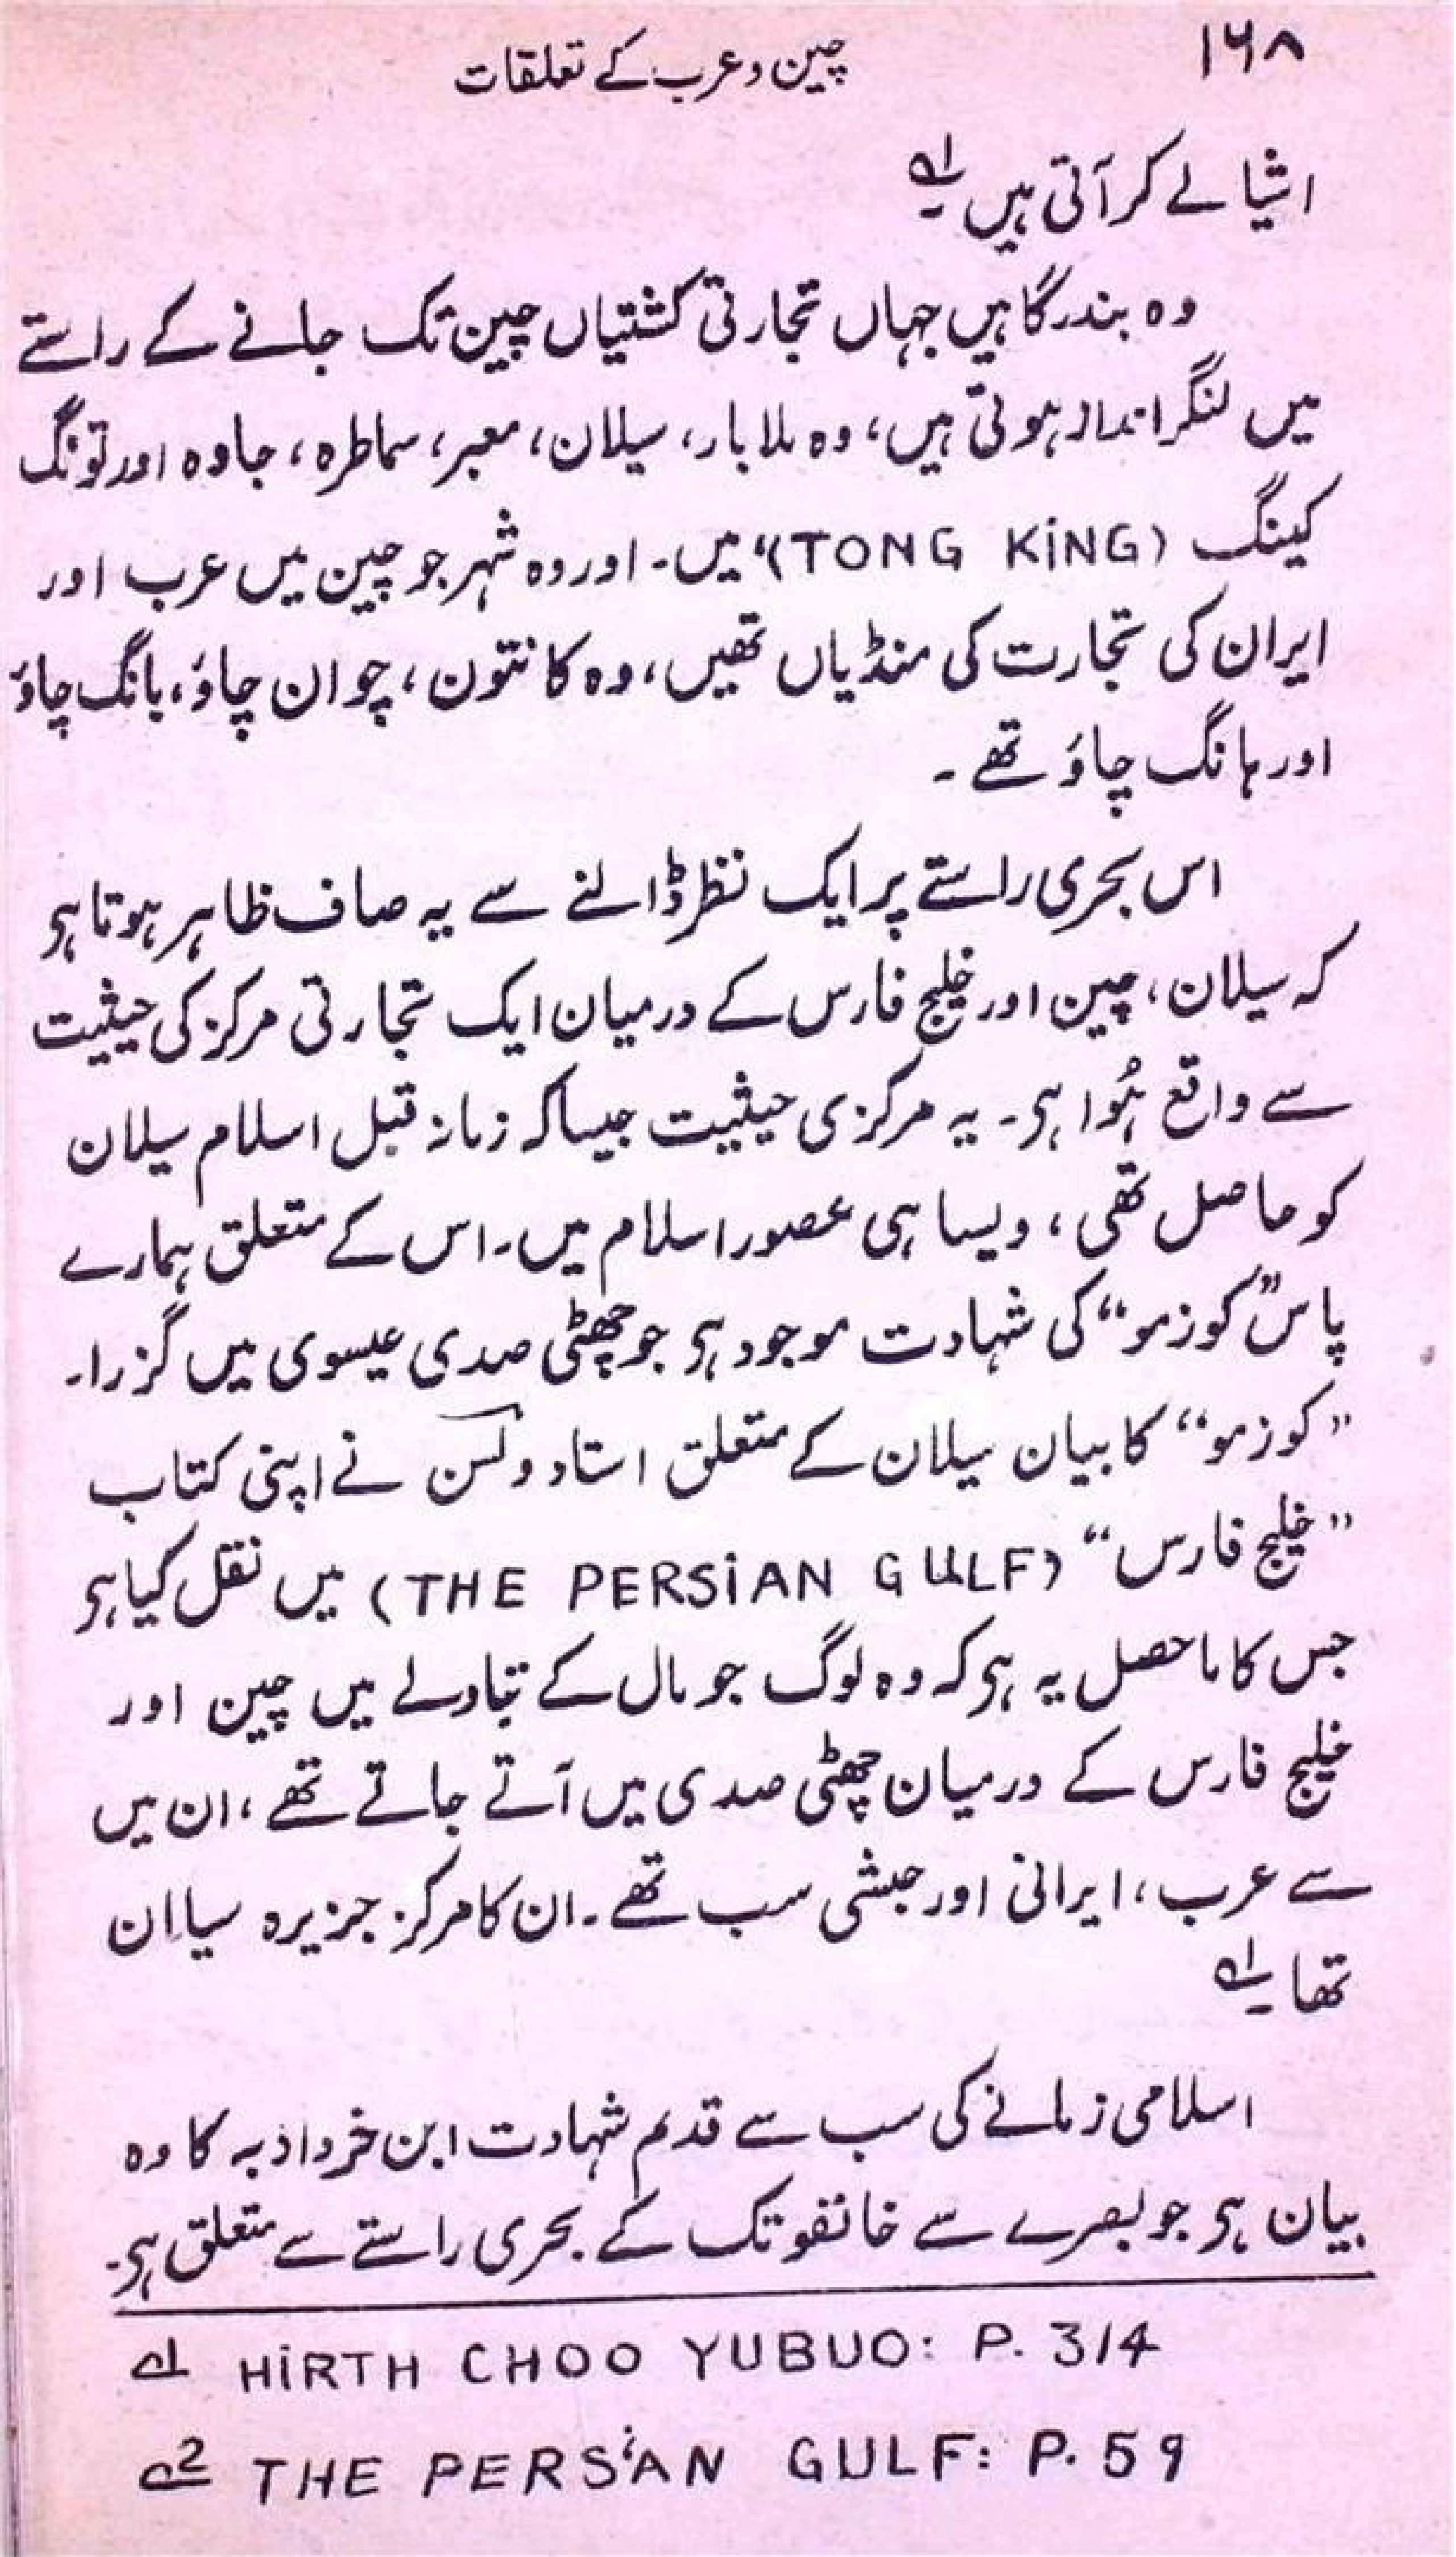 ۱۶۸
چین و عرب کے تعلقات
اشیا لے کر آتی ہیں۔ لہ
وہ بندرگاہیں جہاں تجارتی کشتیاں چین تک جانے کے راستے
میں لنگر انداز ہوتی ہیں، وہ ملابار، سیلان، معبر، سماطرہ، جاوہ اور تونگ
کینگ (TONG KiNG)“ میں۔ اور وہ شہر جو چین میں عرب اور
ایران کی تجارت کی منڈیاں تھیں، وہ کانتون، چوان چاؤ، یانگ چاؤ
اور ہانگ چاؤ تھے۔
اس بحری راستے پر ایک نظر ڈالنے سے یہ صاف ظاہر ہوتا ہی
کہ سیلان، چین اور خلیج فارس کے درمیان ایک تجارتی مرکز کی حیثیت
سے واقع ہُوا ہی۔ یہ مرکزی حیثیت جیسا کہ زمانہ قبل اسلام سیلان
کو حاصل تھی، ویسا ہی عصور اسلام میں۔ اس کے متعلق ہمارے
پاس ”کوزمو“ کی شہادت موجود ہی جو چھٹی صدی عیسوی میں گزرا۔
”کوزمو“ کا بیان سیلان کے متعلق استاد ولسن نے اپنی کتاب
”خلیج فارس“ (THE PERSiAN GULF) میں نقل کیا ہی
جس کا ماحصل یہ ہی کہ وہ لوگ جو مال کے تبادلے میں چین اور
خلیج فارس کے درمیان چھٹی صدی میں آتے جاتے تھے، ان میں
سے عرب، ایرانی اور حبشی سب تھے۔ ان کا مرکز جزیرہ سیلان
تھا۔ لہ
اسلامی زمانے کی سب سے قدیم شہادت ابن خرداذبہ کا وہ
بیان ہی جو بصرے سے خانفو تک کے بحری راستے سے متعلق ہی۔
لہ HiRTH CHOO YUBUO: P. 314
2ہ THE PERSiAN GULF: P. 59